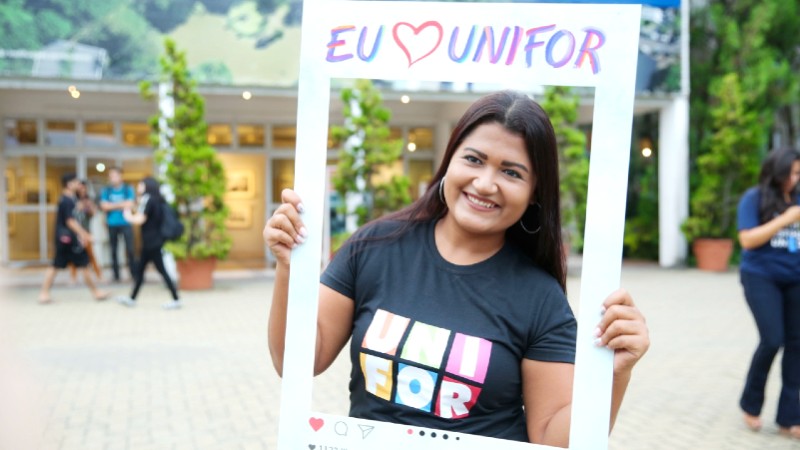 EU ♡ UNIFOR
UNI
FOR